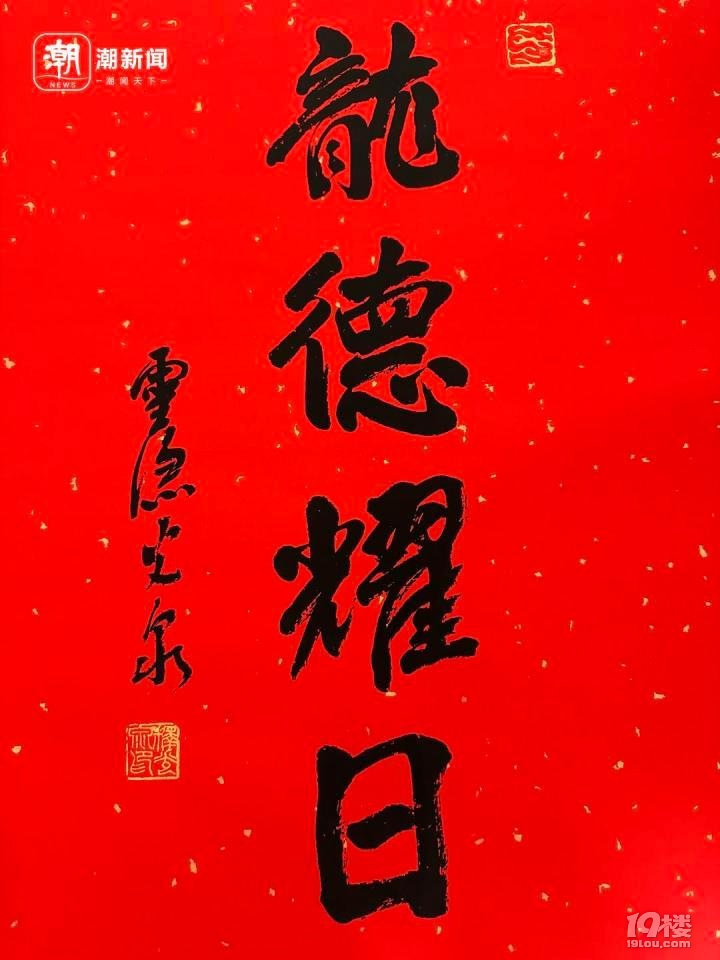 潮
NEWS
潮新闻
潮闻天下
龍德耀日
雲隱光泉
19楼
19lou.com